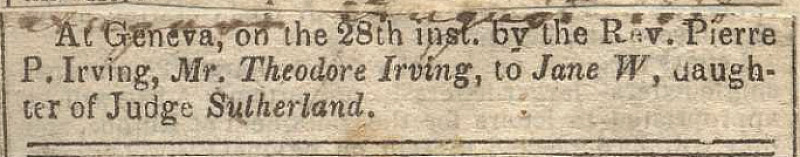 At Geneva, on the 28th inst. by the Rev. Pierre
P. Irving, Mr. Theodore Irving, to Jane W, daugh-
ter of Judge Sutherland.